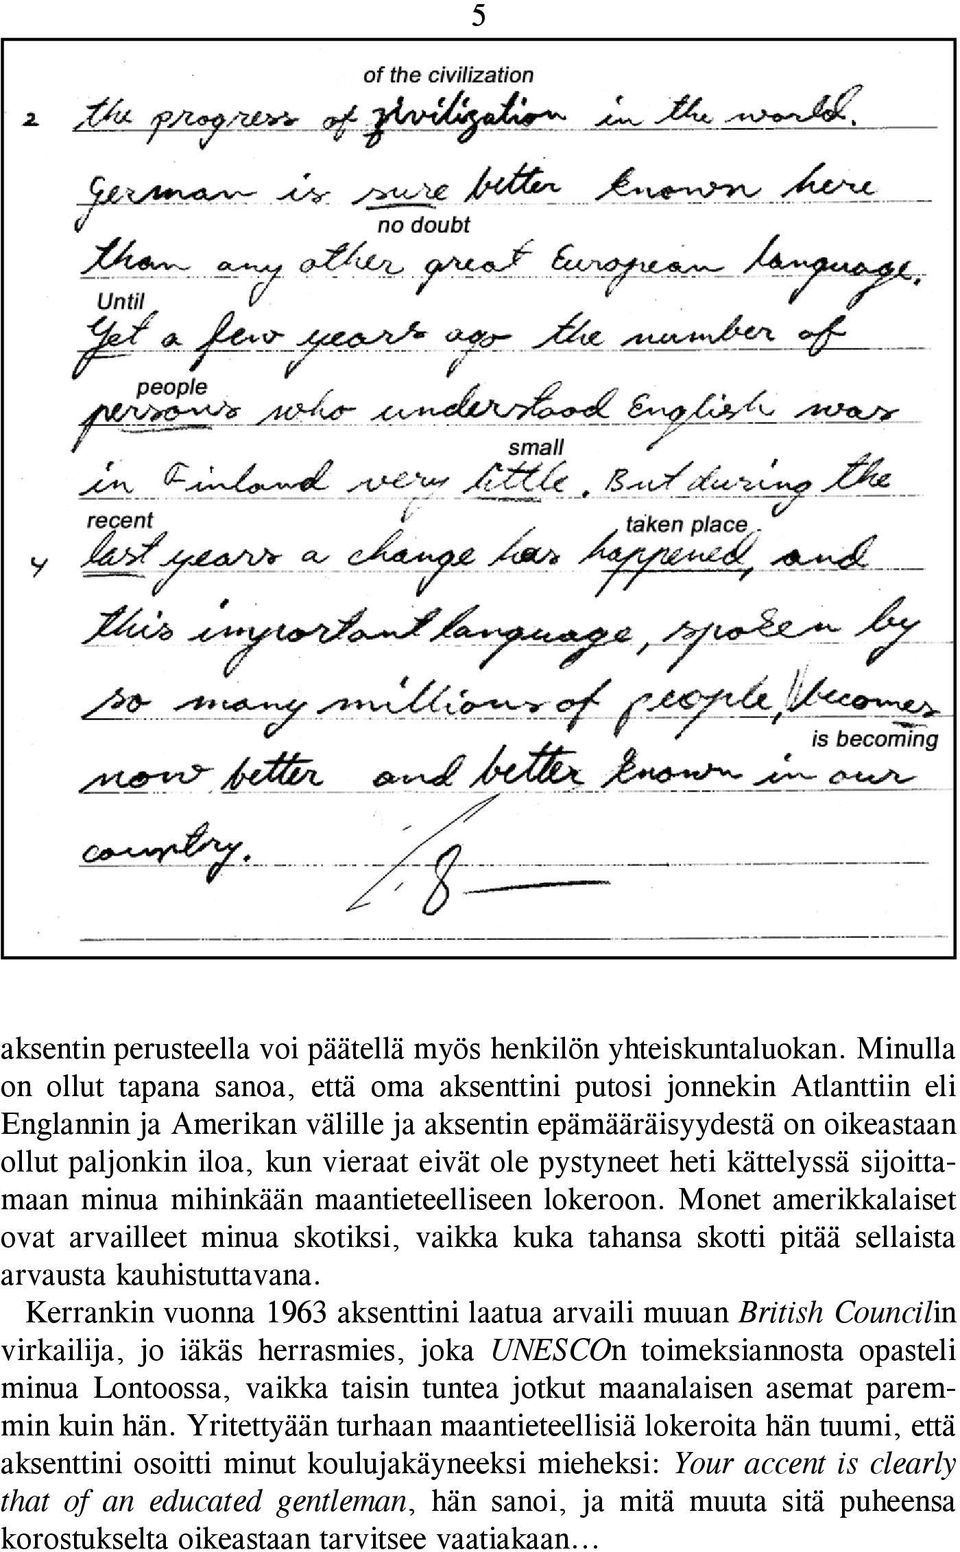 5
of the civilization
2 the progress of zivilization in the world.
German is sure better known here
no doubt
than any other great European language.
Until
Yet a few years ago the number of
people
persons who understood English was
small
in Finland very little. But during the
recent taken place
4 last years a change has happened, and
this important language, spoken by
so many millions of people, becomes
is becoming
now better and better known in our
country.
8
aksentin perusteella voi päätellä myös henkilön yhteiskuntaluokan. Minulla
on ollut tapana sanoa, että oma aksenttini putosi jonnekin Atlanttiin eli
Englannin ja Amerikan välille ja aksentin epämääräisyydestä on oikeastaan
ollut paljonkin iloa, kun vieraat eivät ole pystyneet heti kättelyssä sijoitta-
maan minua mihinkään maantieteelliseen lokeroon. Monet amerikkalaiset
ovat arvailleet minua skotiksi, vaikka kuka tahansa skotti pitää sellaista
arvausta kauhistuttavana.
Kerrankin vuonna 1963 aksenttini laatua arvaili muuan British Councilin
virkailija, jo iäkäs herrasmies, joka UNESCOn toimeksiannosta opasteli
minua Lontoossa, vaikka taisin tuntea jotkut maanalaisen asemat parem-
min kuin hän. Yritettyään turhaan maantieteellisiä lokeroita hän tuumi, että
aksenttini osoitti minut koulujakäyneeksi mieheksi: Your accent is clearly
that of an educated gentleman, hän sanoi, ja mitä muuta sitä puheensa
korostukselta oikeastaan tarvitsee vaatiakaan…